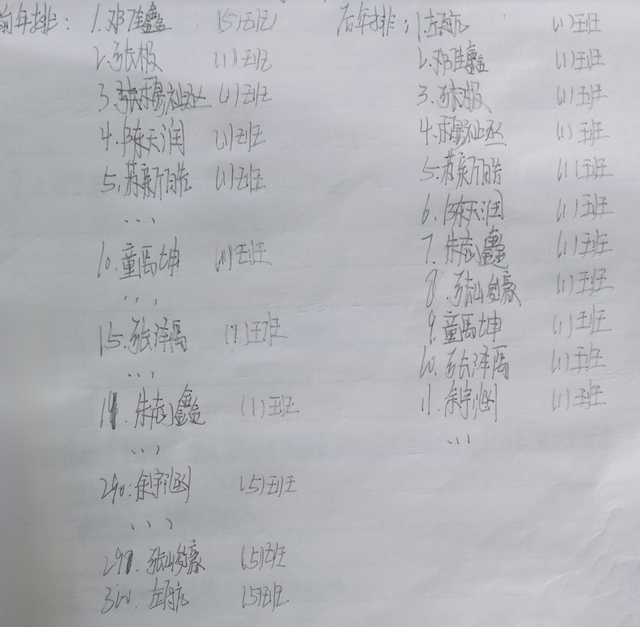 前年排：
1.邓佳鑫 (5)班
2.张极 (1)班
3.张穆祉丞 (1)班
4.陈天润 (1)班
5.苏新皓 (1)班
...
10.童禹坤 (1)班
...
15.张泽禹 (1)班
...
19.朱志鑫 (1)班
...
290.余宇涵 (5)班
...
299.张峻豪 (5)班
300.左航 (5)班
后年排：
1.左航 (1)班
2.邓佳鑫 (1)班
3.张极 (1)班
4.穆祉丞 (1)班
5.苏新皓 (1)班
6.陈天润 (1)班
7.朱志鑫 (1)班
8.张峻豪 (1)班
9.童禹坤 (1)班
10.张泽禹 (1)班
11.余宇涵 (1)班
...